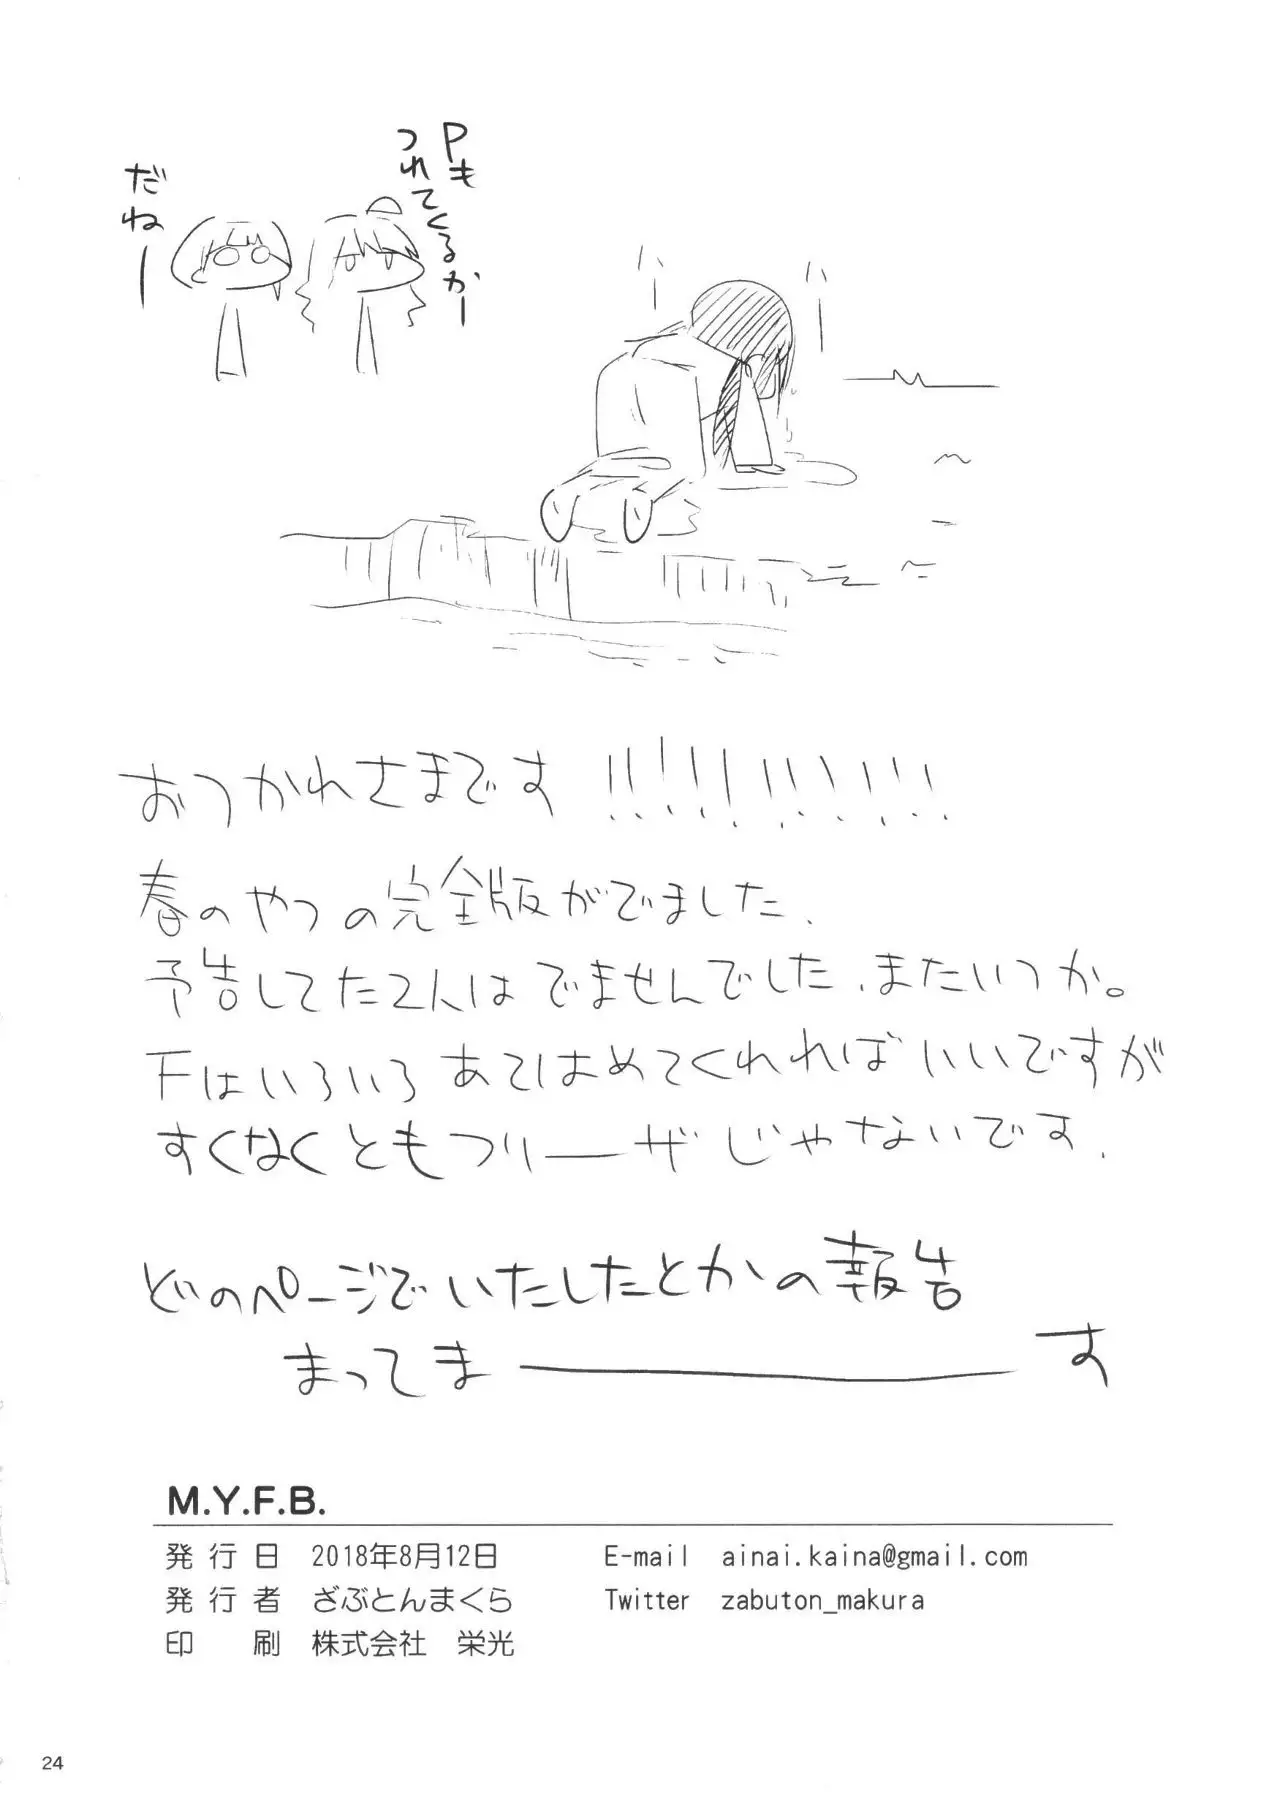 Pも
つれてくるかー
だねー
おつかれさまです!!!!!!!!!!!
春のやつの完全版がでました.
予告してた2人はでませんでした.またいつか。
下はいろいろあてはめてくれればいいですが
すくなくともフリーザじゃないです.
どのページでいたしたとかの報告
まってま———す
M.Y.F.B.
発行日 2018年8月12日 E-mail ainai.kaina@gmail.com
発行者 ざぶとんまくら Twitter zabuton_makura
印刷 株式会社 栄光
24